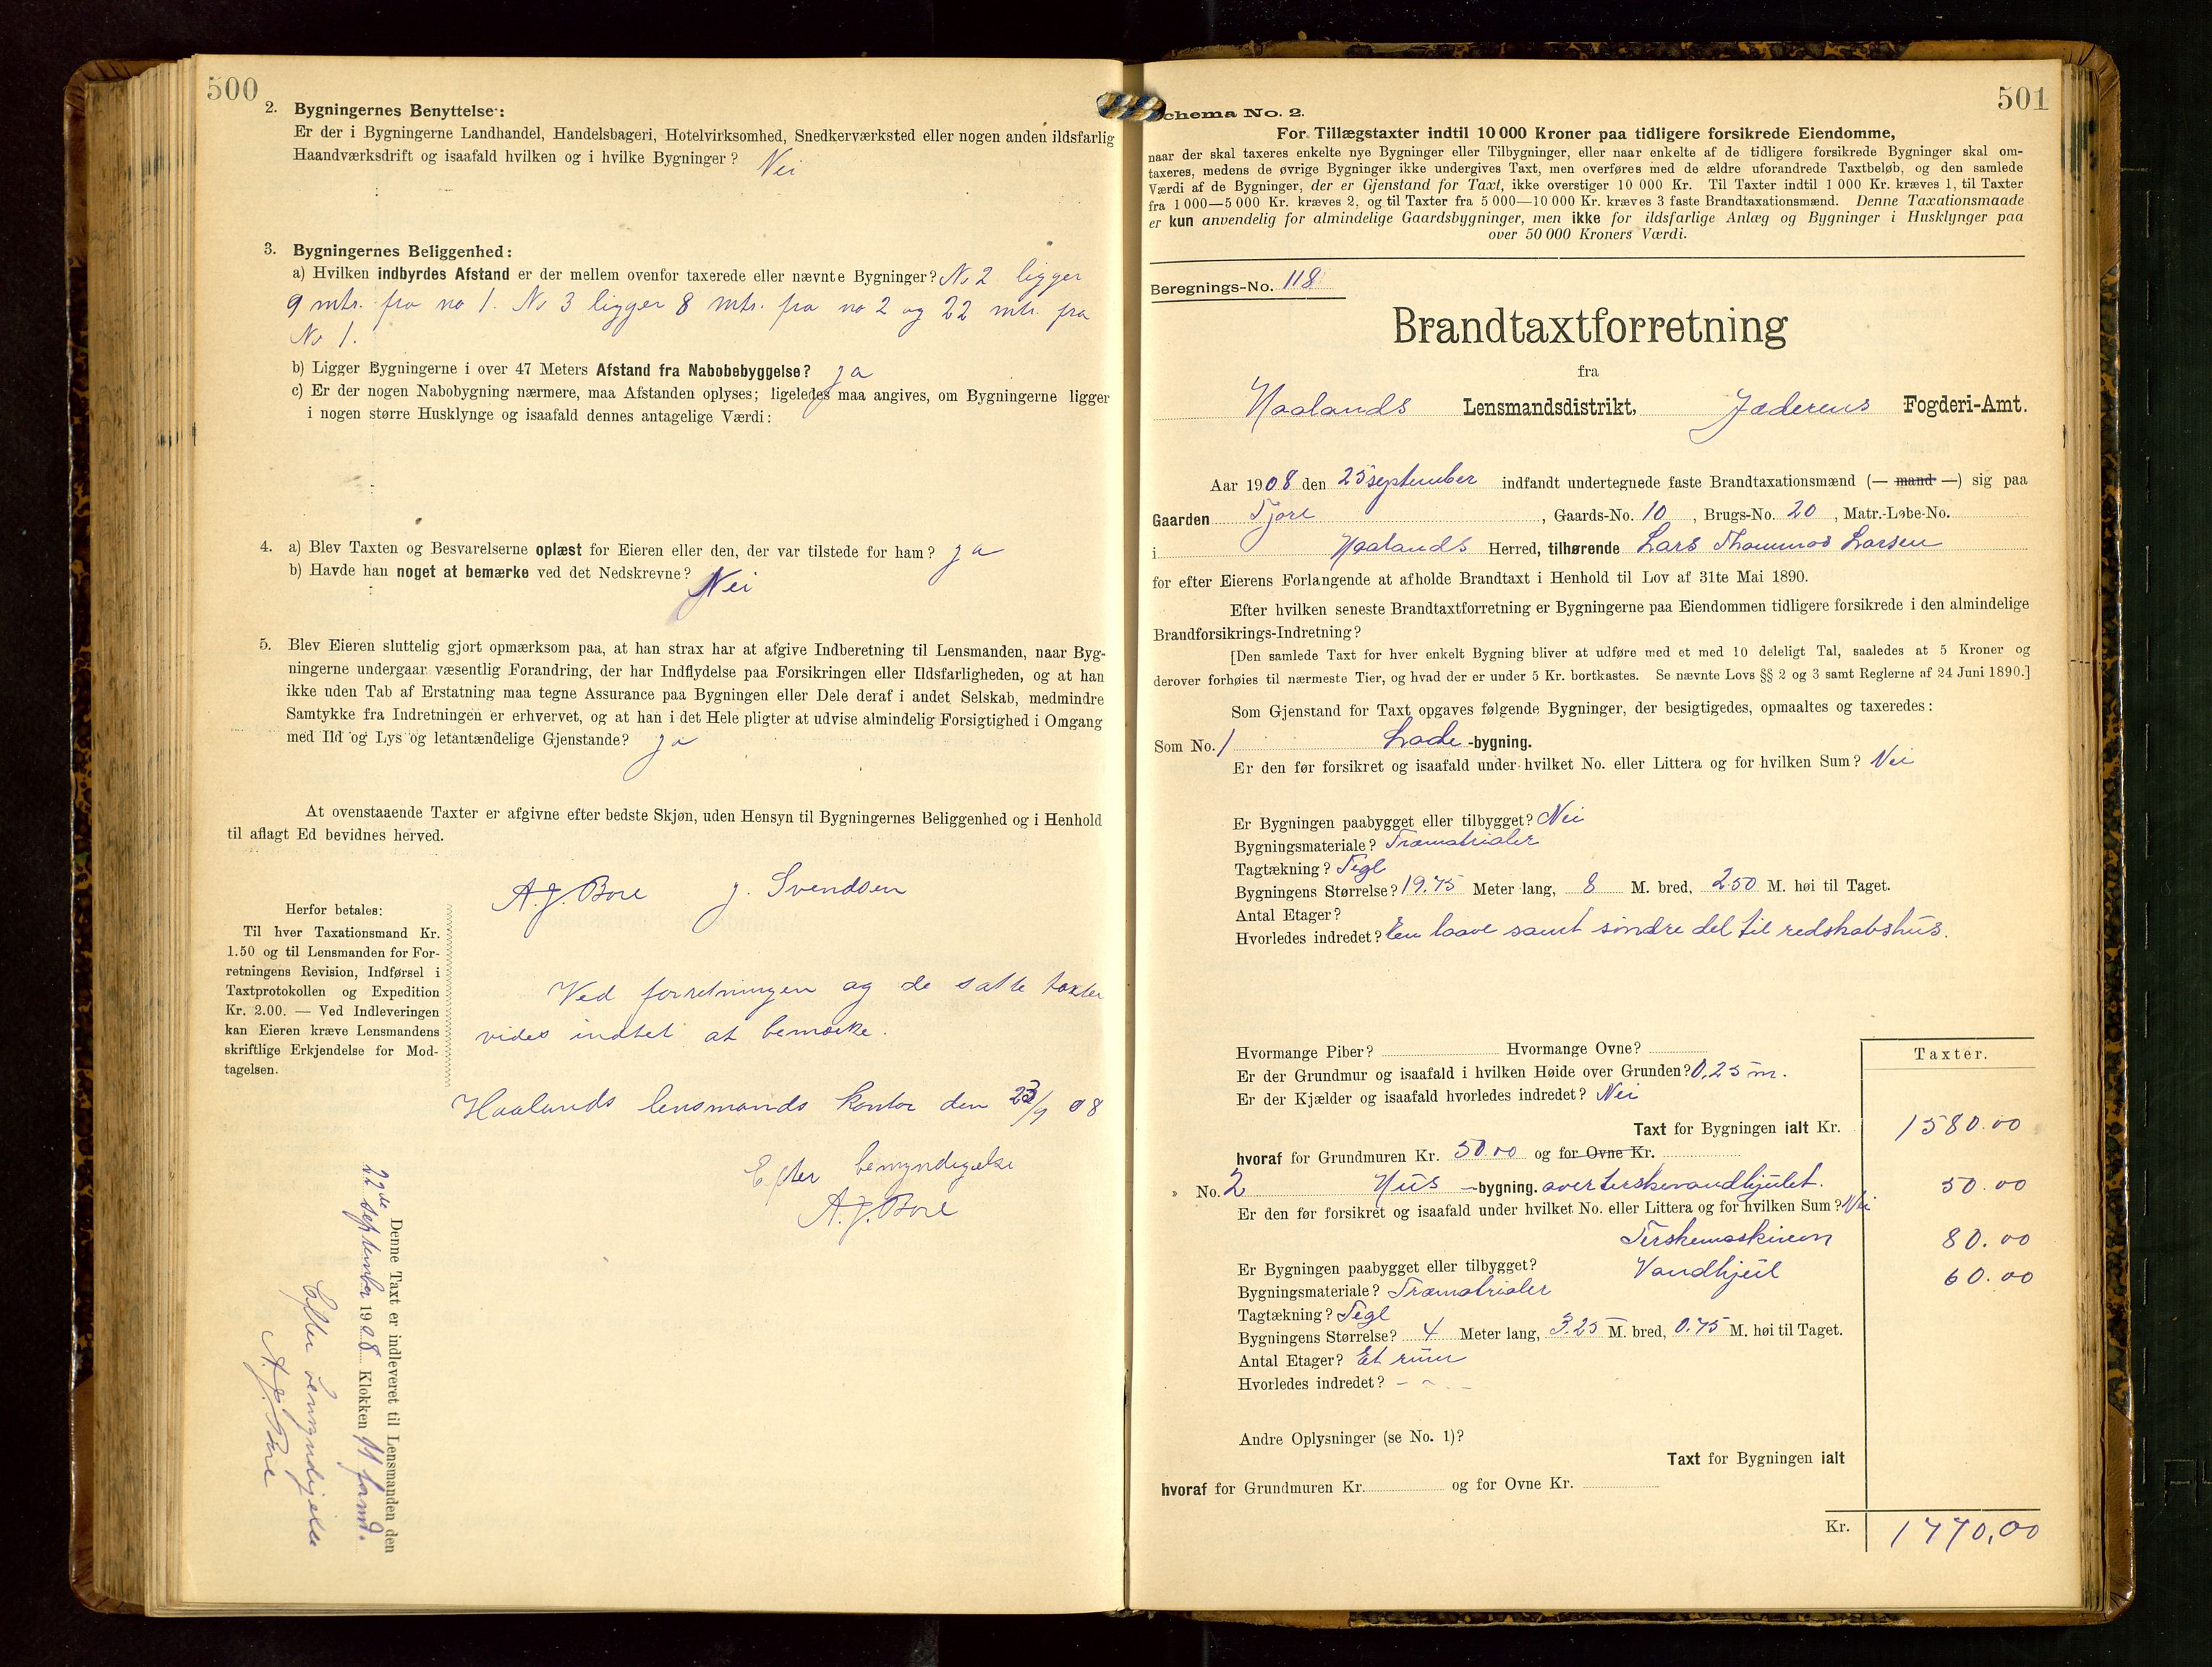 500
2. Bygningernes Benyttelse:
Er der i Bygningerne Landhandel, Handelsbageri, Hotelvirksomhed, Snedkerværksted eller nogen anden ildsfarlig
Haandværksdrift og isaafald hvilken og i hvilke Bygninger? Nei
3. Bygningernes Beliggenhed:
a) Hvilken indbyrdes Afstand er der mellem ovenfor taxerede eller nævnte Bygninger? No 2 ligger
9 mtr. fra no 1. No 3 ligger 8 mtr. fra no 2 og 22 mtr. fra
No 1.
b) Ligger Bygningerne i over 47 Meters Afstand fra Nabobebyggelse? ja
c) Er der nogen Nabobygning nærmere, maa Afstanden oplyses; ligeledes maa angives, om Bygningerne ligger
i nogen større Husklynge og isaafald dennes antagelige Værdi:
4. a) Blev Taxten og Besvarelserne oplæst for Eieren eller den, der var tilstede for ham? ja
b) Havde han noget at bemærke ved det Nedskrevne? Nei
5. Blev Eieren sluttelig gjort opmærksom paa, at han strax har at afgive Indberetning til Lensmanden, naar Byg-
ningerne undergaar væsentlig Forandring, der har Indflydelse paa Forsikringen eller Ildsfarligheden, og at han
ikke uden Tab af Erstatning maa tegne Assurance paa Bygningen eller Dele deraf i andet Selskab, medmindre
Samtykke fra Indretningen er erhvervet, og at han i det Hele pligter at udvise almindelig Forsigtighed i Omgang
med Ild og Lys og letantændelige Gjenstande? ja
At ovenstaaende Taxter er afgivne efter bedste Skjøn, uden Hensyn til Bygningernes Beliggenhed og i Henhold
til aflagt Ed bevidnes herved.
A. J. Bore J. Svendsen
Herfor betales:
Til hver Taxationsmand Kr.
1.50 og til Lensmanden for For-
retningens Revision, Indførsel i
Taxtprotokollen og Expedition
Kr. 2.00. — Ved Indleveringen
kan Eieren kræve Lensmandens
skriftlige Erkjendelse for Mod-
tagelsen.
Ved forretningen og de satte taxter
vides indtet at bemærke.
Haalands lensmands kontor den 23/9 08
Efter bemyndigelse
A. J. Bore
Denne Taxt er indleveret til Lensmanden den
22de september 1908 Klokken 11 formd.
Efter bemyndigelse
A. J. Bore
501
Schema No. 2.
For Tillægstaxter indtil 10 000 Kroner paa tidligere forsikrede Eiendomme,
naar der skal taxeres enkelte nye Bygninger eller Tilbygninger, eller naar enkelte af de tidligere forsikrede Bygninger skal om-
taxeres, medens de øvrige Bygninger ikke undergives Taxt, men overføres med de ældre uforandrede Taxtbeløb, og den samlede
Værdi af de Bygninger, der er Gjenstand for Taxt, ikke overstiger 10 000 Kr. Til Taxter indtil 1 000 Kr. kræves 1, til Taxter
fra 1 000—5 000 Kr. kræves 2, og til Taxter fra 5 000—10 000 Kr. kræves 3 faste Brandtaxationsmænd. Denne Taxationsmaade
er kun anvendelig for almindelige Gaardsbygninger, men ikke for ildsfarlige Anlæg og Bygninger i Husklynger paa
over 50 000 Kroners Værdi.
Beregnings-No. 118
Brandtaxtforretning
fra
Haalands Lensmandsdistrikt, Jæderens Fogderi-Amt.
Aar 1908 den 25 september indfandt undertegnede faste Brandtaxationsmænd (— mand —) sig paa
Gaarden Tjore, Gaards-No. 10, Brugs-No. 20, Matr.-Løbe-No.
i Haalands Herred, tilhørende Lars Thommas Larsen
for efter Eierens Forlangende at afholde Brandtaxt i Henhold til Lov af 31te Mai 1890.
Efter hvilken seneste Brandtaxtforretning er Bygningerne paa Eiendommen tidligere forsikrede i den almindelige
Brandforsikrings-Indretning?
[Den samlede Taxt for hver enkelt Bygning bliver at udføre med et med 10 deleligt Tal, saaledes at 5 Kroner og
derover forhøies til nærmeste Tier, og hvad der er under 5 Kr. bortkastes. Se nævnte Lovs §§ 2 og 3 samt Reglerne af 24 Juni 1890.]
Som Gjenstand for Taxt opgaves følgende Bygninger, der besigtigedes, opmaaltes og taxeredes:
Som No. 1 Lade-bygning.
Er den før forsikret og isaafald under hvilket No. eller Littera og for hvilken Sum? Nei
Er Bygningen paabygget eller tilbygget? Nei
Bygningsmateriale? Træmatrialer
Tagtækning? Tegl
Bygningens Størrelse? 19.75 Meter lang, 8 M. bred, 2.50 M. høi til Taget.
Antal Etager?
Hvorledes indredet? En laave samt søndre del til redskabshus.
Hvormange Piber? Hvormange Ovne?
Taxter.
Er der Grundmur og isaafald i hvilken Høide over Grunden? 0,25 m.
Er der Kjælder og isaafald hvorledes indredet? Nei
Taxt for Bygningen ialt Kr. 1580.00
hvoraf for Grundmuren Kr. 50.00 og for Ovne Kr.
» No. 2 Hus -bygning. over terskevandhjulet. 50.00
Er den før forsikret og isaafald under hvilket No. eller Littera og for hvilken Sum? Nei
Terskemaskinen 80.00
Er Bygningen paabygget eller tilbygget? Vandhjul 60.00
Bygningsmateriale? Træmatrialer
Tagtækning? Tegl
Bygningens Størrelse? 4 Meter lang, 3.25 M. bred, 0.75 M. høi til Taget.
Antal Etager? Et rum
Hvorledes indredet? - - - -
Andre Oplysninger (se No. 1)?
Taxt for Bygningen ialt
hvoraf for Grundmuren Kr. og for Ovne Kr.
Kr. 1770,00